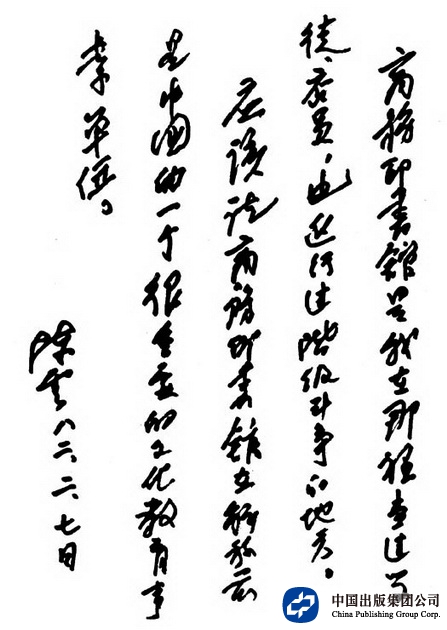 商務印书館是我在那裡当过学
徒、店员,也进行过阶级斗争的地方。
应该说商務印书館在解放前
是中国的一个很重要的文化教育事
業单位。
陈云 八二、二、七日
中国出版集团公司
China Publishing Group Corp.